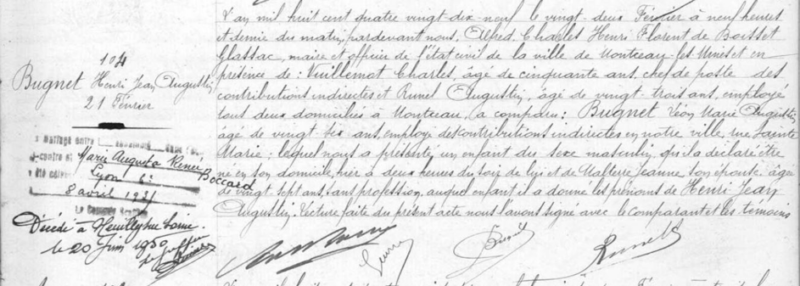 104
Bugnet Henri Jean Augustin
21 Février
Mariage
Marie Augusta Renée
Boccard
Lyon 6e
8 avril 1921
Décédé à Neuilly sur Seine
le 20 Juin 1950
L'an mil huit cent quatre vingt dix neuf le vingt deux Février à neuf heures
et demie du matin, pardevant nous, Alfred Charles Henri Florent de Boisset
Glassac, maire et officier de l'état civil de la ville de Montceau-les-Mines et en
présence de : Guillemot Charles, âgé de cinquante ans, chef de poste des
contributions indirectes et Augustin, âgé de vingt trois ans, employé
tout deux domiciliés à Montceau, a comparu : Bugnet Léon Marie Augustin
âgé de vingt six ans, employé des contributions indirectes en notre ville, rue Sainte
Marie : lequel nous a présenté un enfant du sexe masculin, qu'il a déclaré être
né en son domicile, hier à deux heures du soir de lui et de Jeanne son épouse âgée
de vingt sept ans, sans profession, auquel enfant il a donné les prénoms de Henri Jean
Augustin, Lecture faite du présent acte nous l'avons signé avec le comparant et les témoins